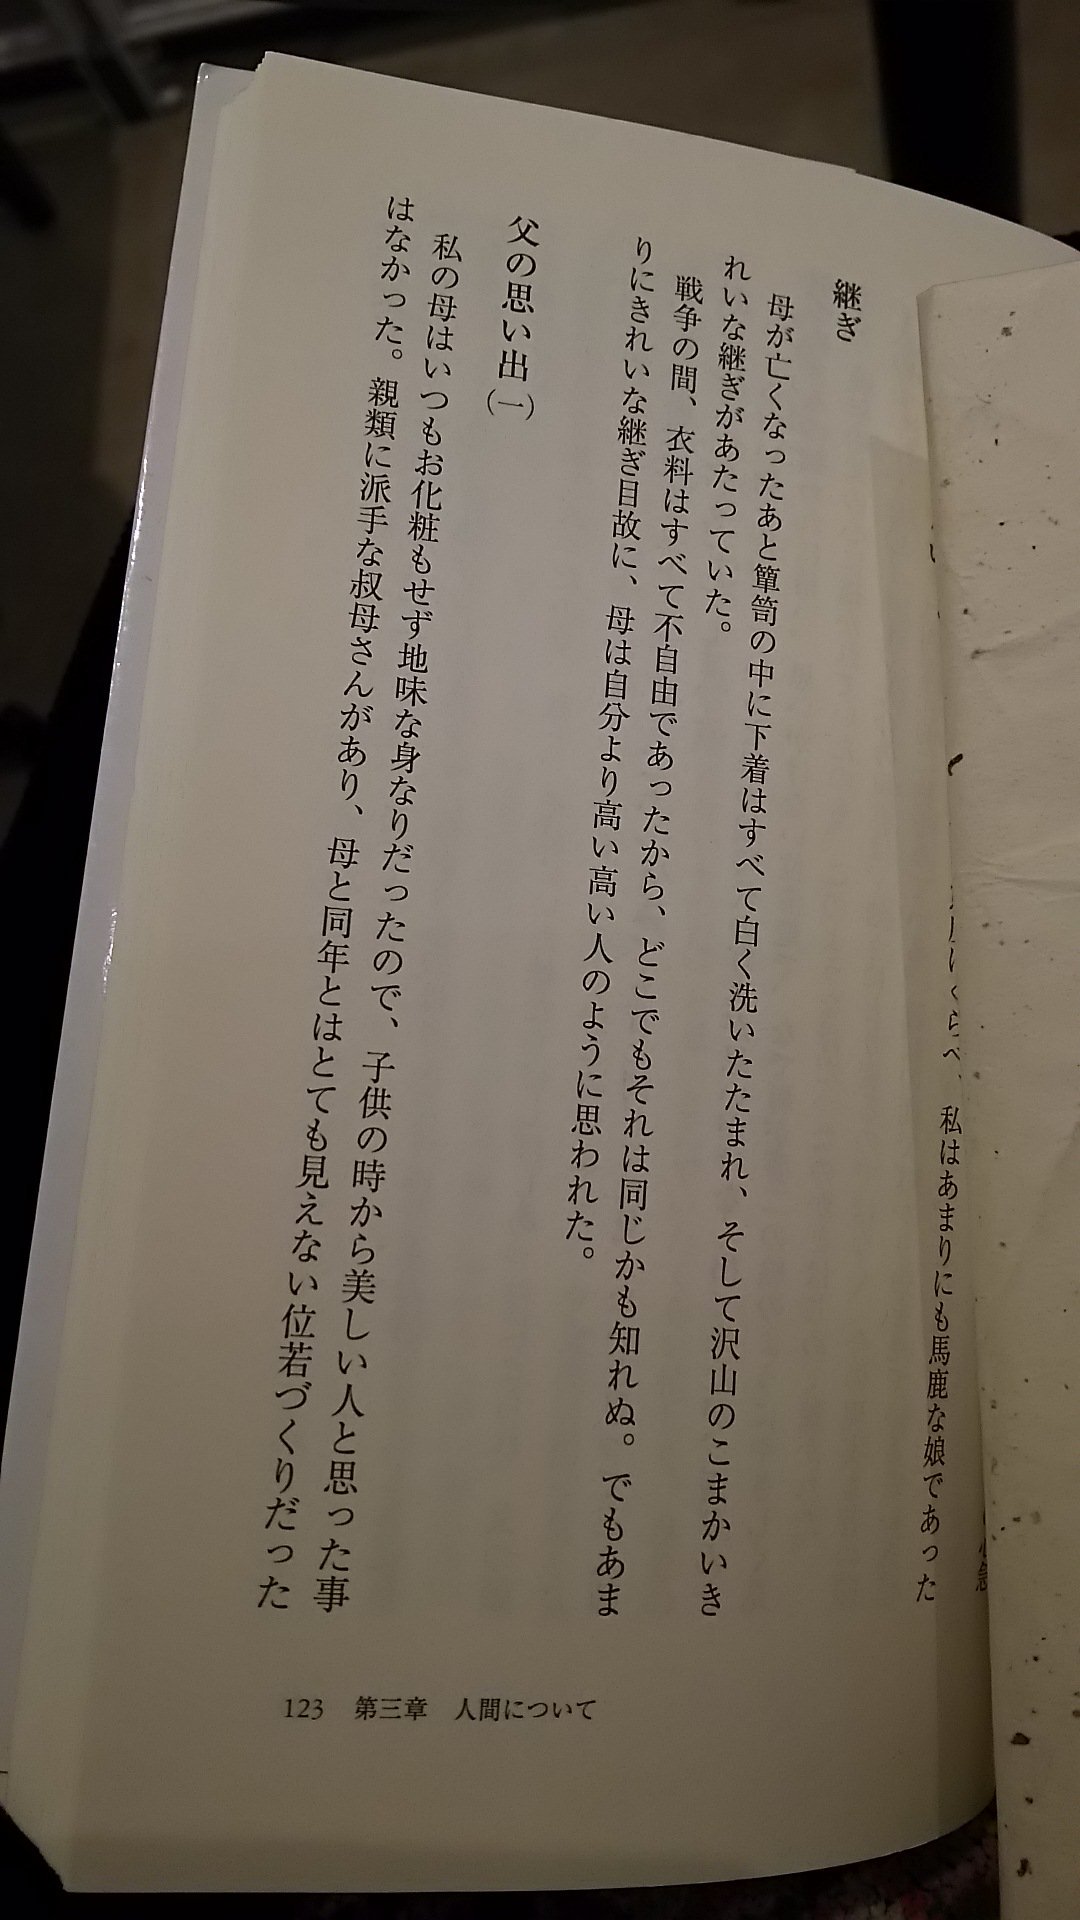 くらべ、私はあまりにも馬鹿な娘であった
継ぎ
母が亡くなったあと簞笥の中に下着はすべて白く洗いたたまれ、そして沢山のこまかいき
れいな継ぎがあたっていた。
戦争の間、衣料はすべて不自由であったから、どこでもそれは同じかも知れぬ。でもあま
りにきれいな継ぎ目故に、母は自分より高い高い人のように思われた。
父の思い出(一)
私の母はいつもお化粧もせず地味な身なりだったので、子供の時から美しい人と思った事
はなかった。親類に派手な叔母さんがあり、母と同年とはとても見えない位若づくりだった
123 第三章 人間について